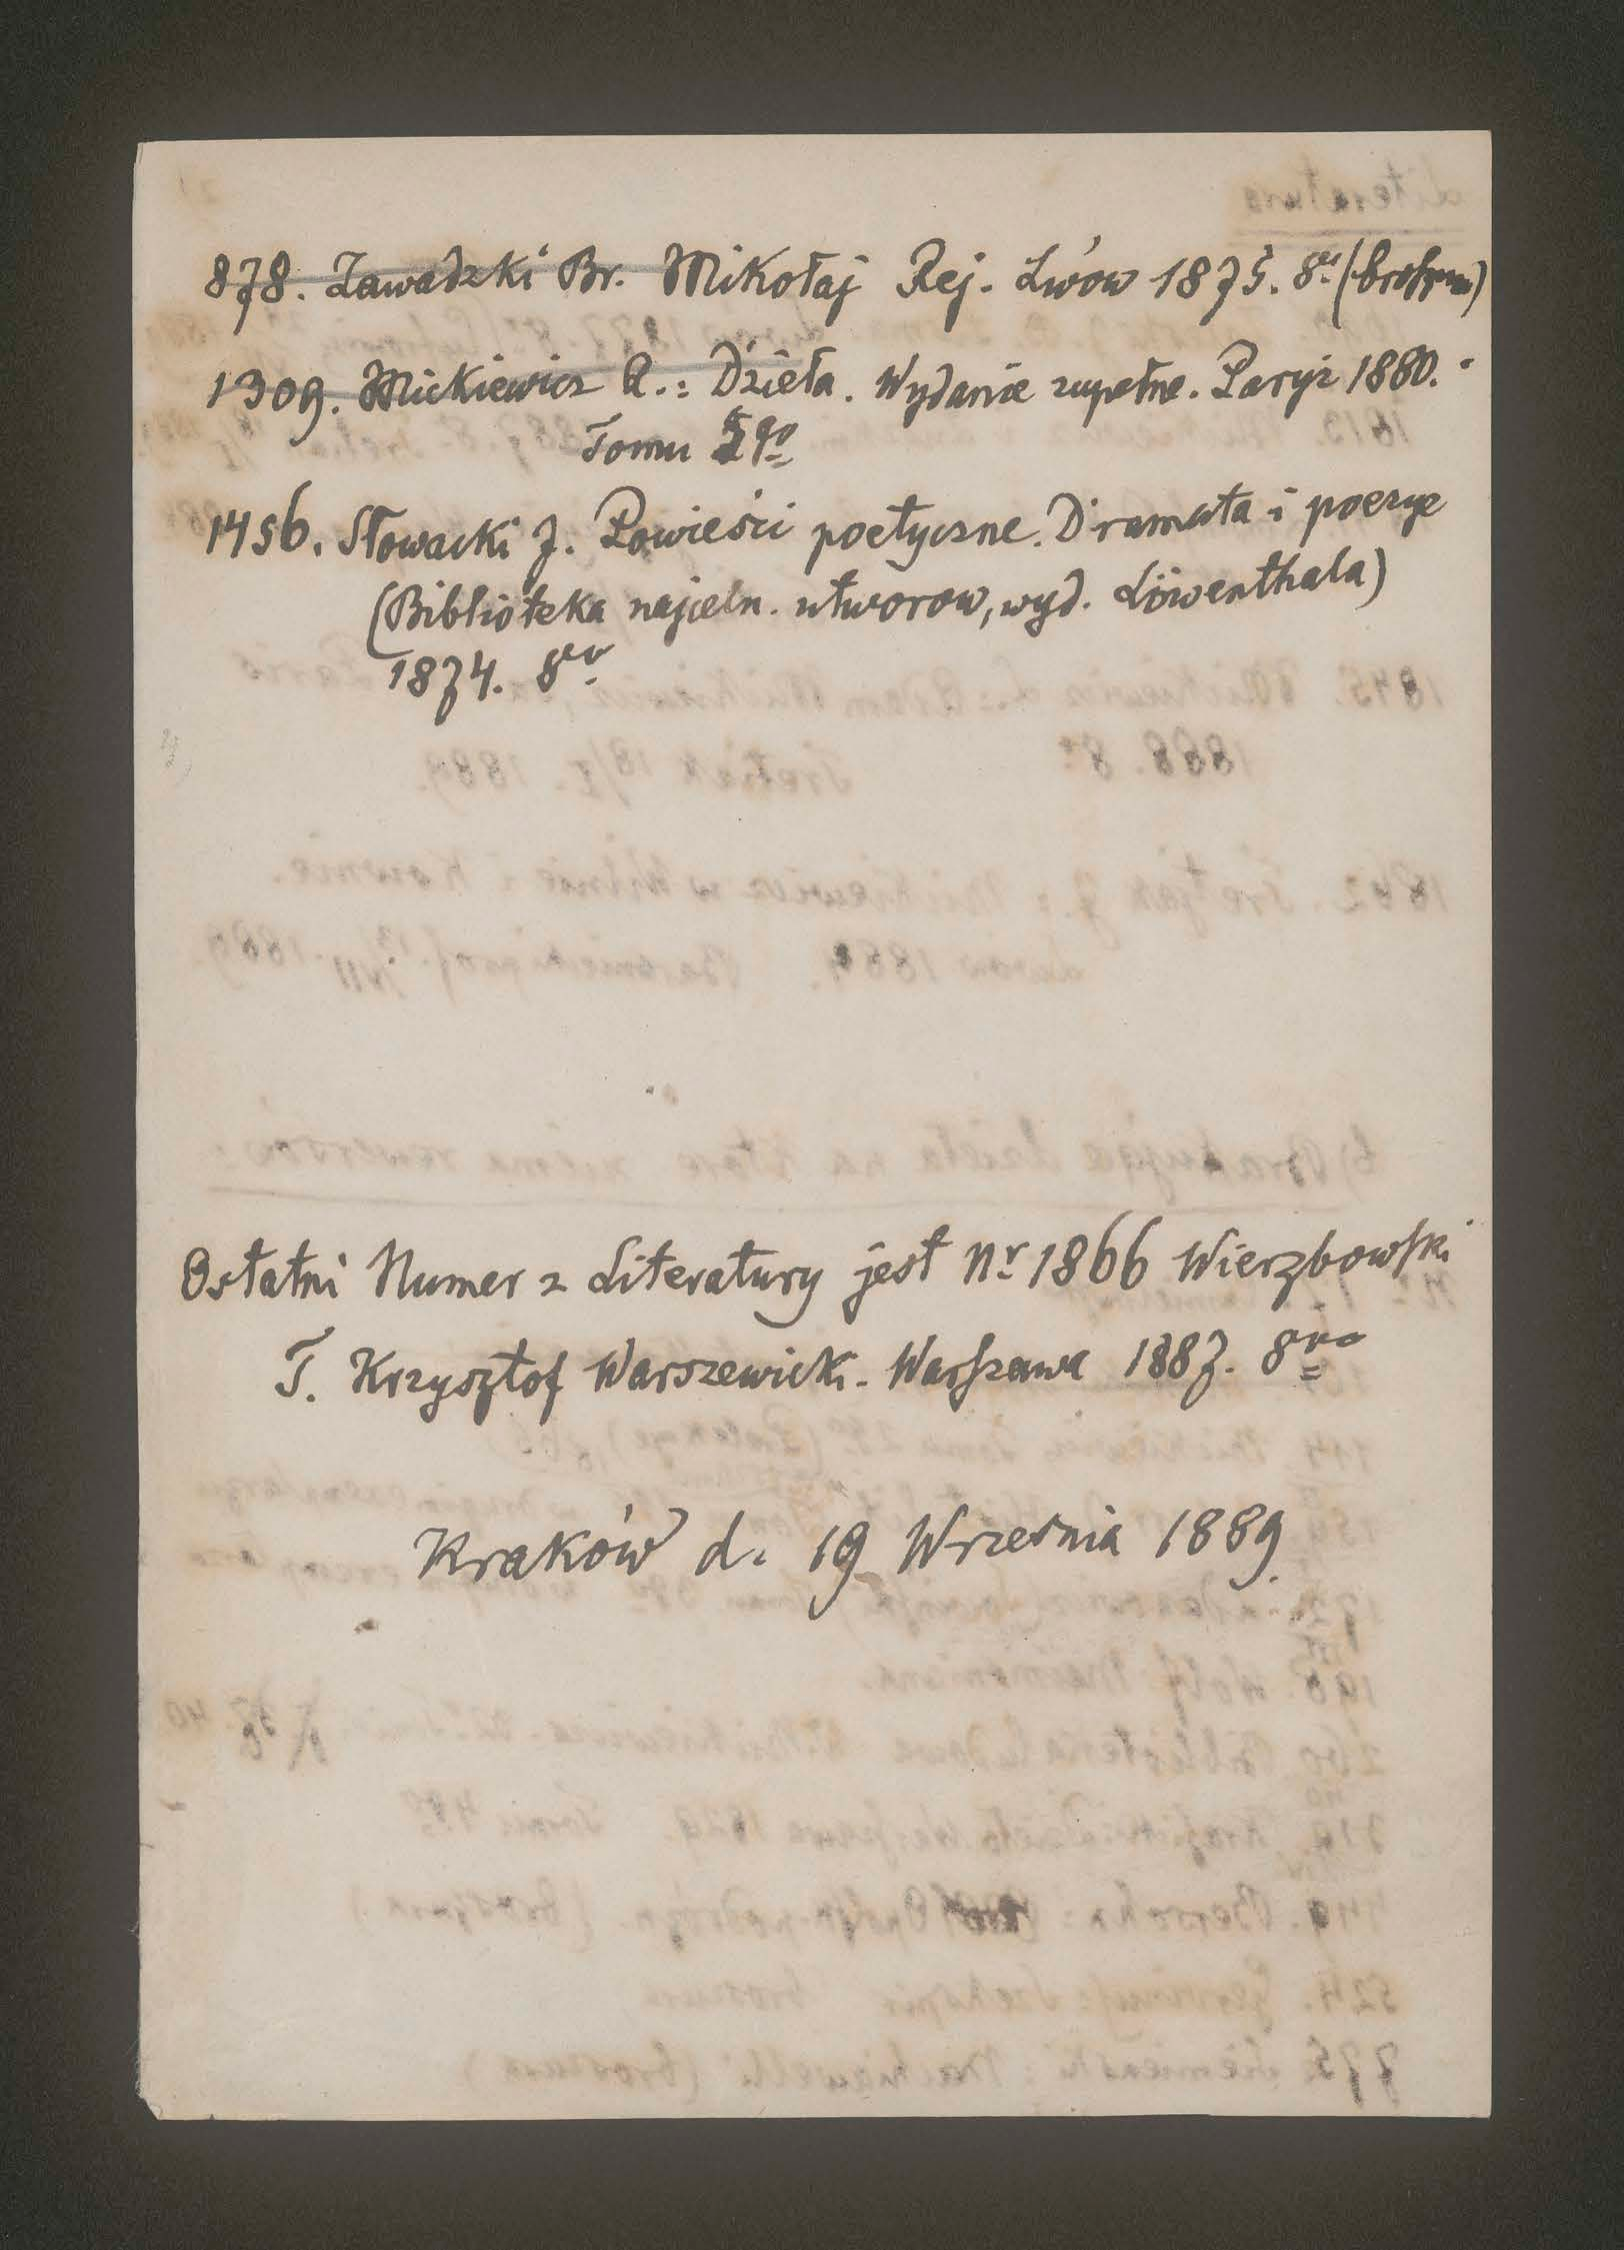 878. Zawadzki Br. Mikołaj Rej. Lwów 1875. 8vo (broszura)
1309. Mickiewicz A.: Dzieła. Wydanie zupełne. Paryż 1880.
Tomu I go
1456. Słowacki J. Powieści poetyczne. Dramata i poezye
(Biblioteka najceln. utworow, wyd. Löwenthala)
1874. 8vo
Ostatni Numer z Literatury jest Nr 1866 Wierzbowski
T. Krzysztof Warszewicki. Warszawa 1887. 8vo
Kraków d. 19 Września 1889.